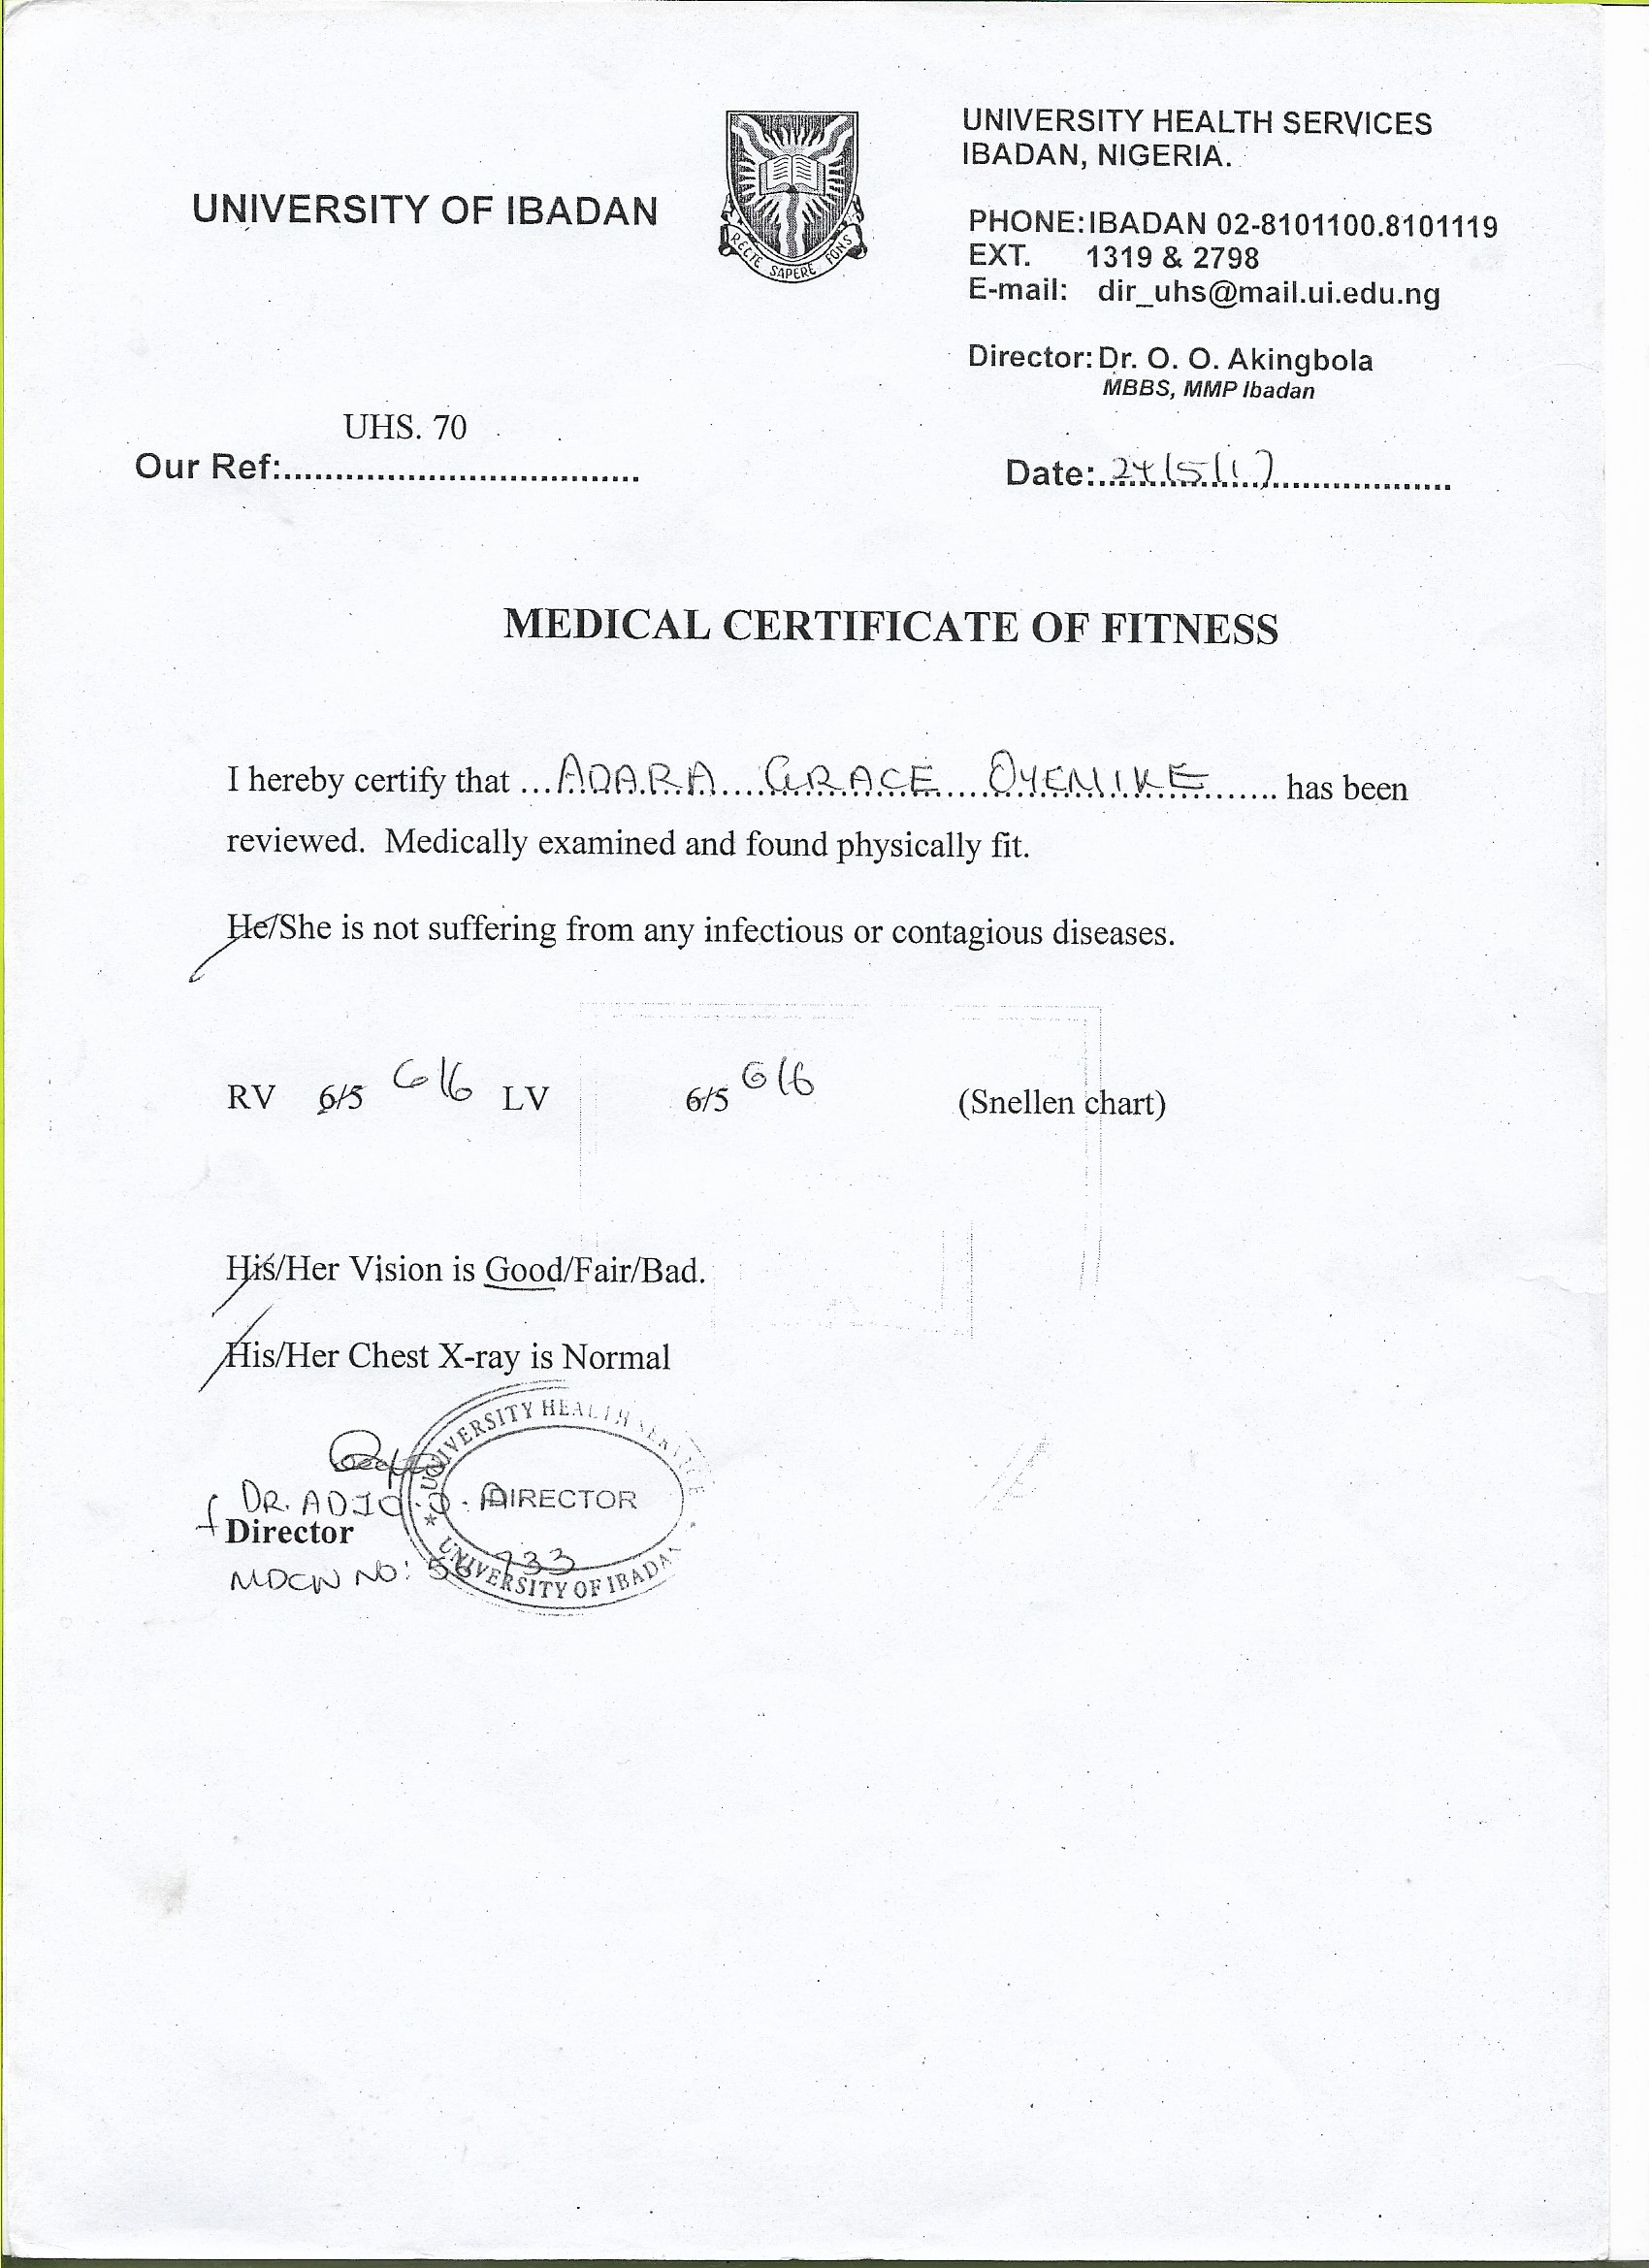 UNIVERSITY OF IBADAN
RECTE SAPERE FONS
UNIVERSITY HEALTH SERVICES
IBADAN, NIGERIA.
PHONE: IBADAN 02-8101100.8101119
EXT. 1319 & 2798
E-mail: dir_uhs@mail.ui.edu.ng
Director: Dr. O. O. Akingbola
MBBS, MMP Ibadan
UHS. 70
Our Ref:..................................
Date: 24/5/17
MEDICAL CERTIFICATE OF FITNESS
I hereby certify that ... ADARA GRACE OYENIKE ... has been
reviewed. Medically examined and found physically fit.
He/She is not suffering from any infectious or contagious diseases.
RV 6/5 6/6 LV 6/5 6/6 (Snellen chart)
His/Her Vision is Good/Fair/Bad.
His/Her Chest X-ray is Normal
DR.
Director
MDCN NO:
UNIVERSITY HEALTH SERVICE
DIRECTOR
UNIVERSITY OF IBADAN